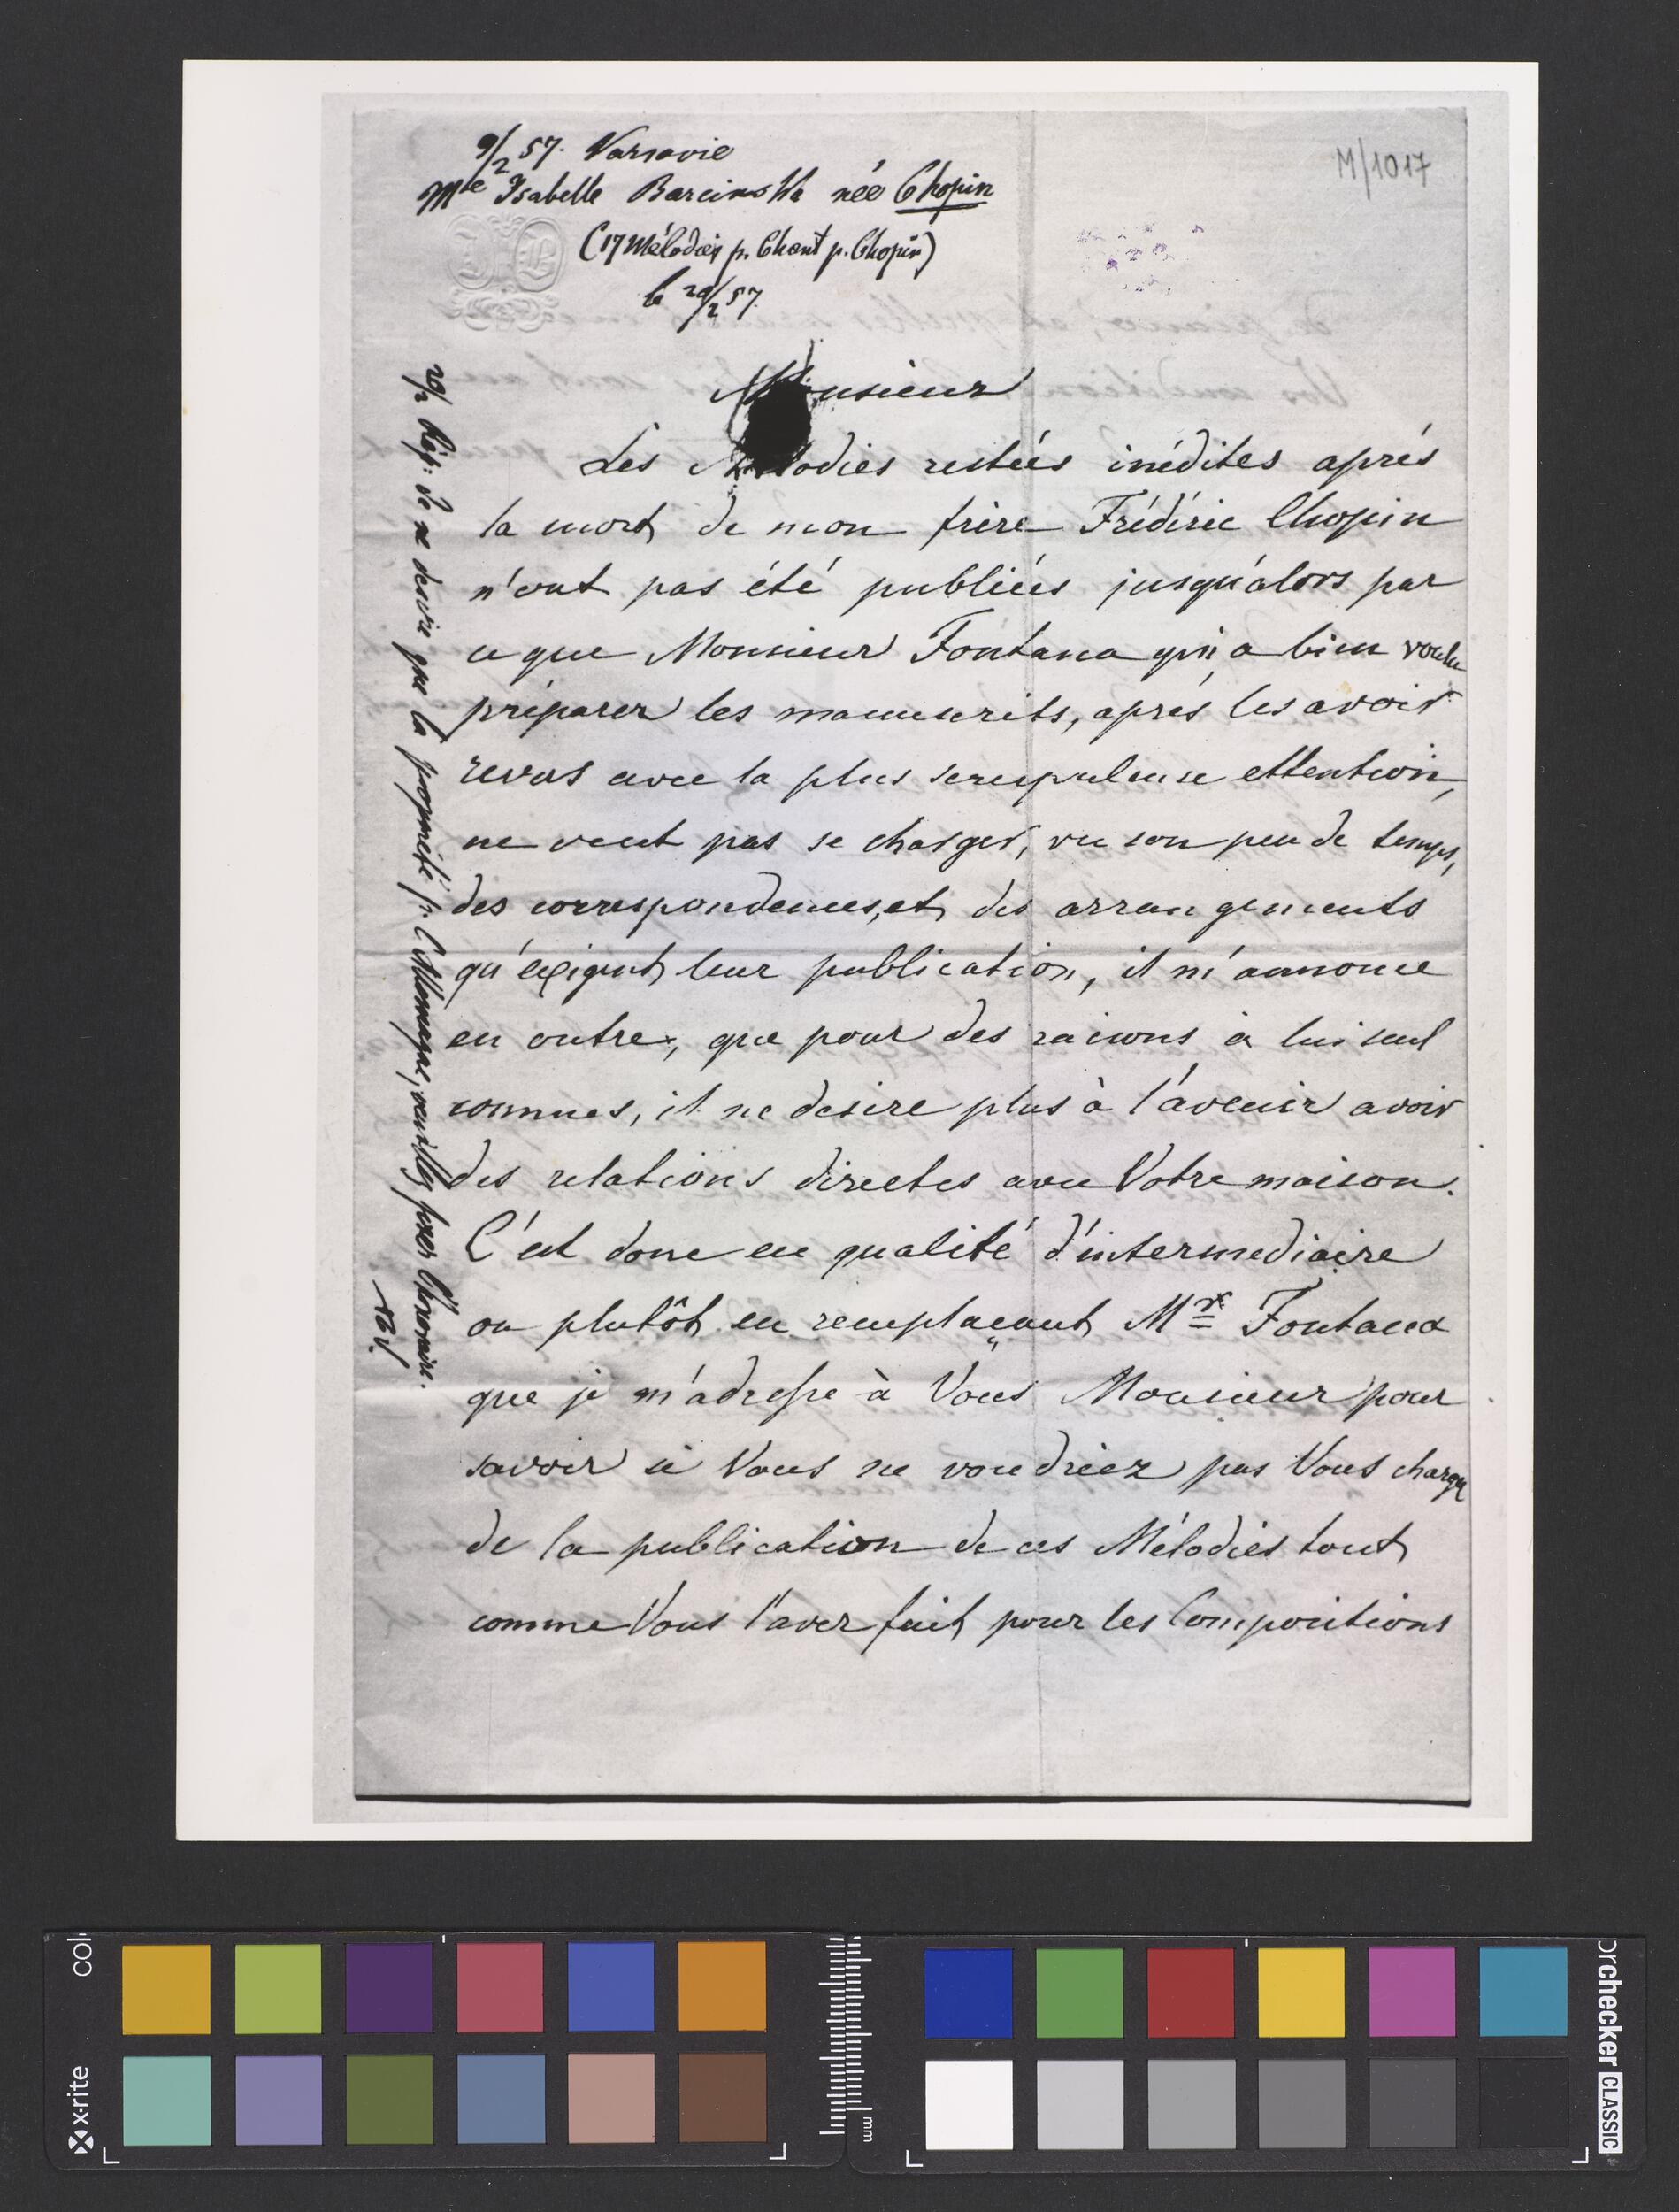 9/2 57. Varsovie
M/1017
Mde Isabelle Barcinska née Chopin
(17 Mélodies p. Chant p. Chopin)
le 20/2 57.
Monsieur
Les Mélodies restées inédites aprés
la mort de mon frère Frédéric Chopin
n'ont pas été publiées jusqu'alors par
ce que Monsieur Fontana qui a bien voulu
préparer les manuscrits, aprés les avoir
revus avec la plus scrupuleuse attention,
ne veut pas se charger, vu son peu de temps,
des correspondences, et des arrangements
qu'exigent leur publication, il m'annonce
en outre, que pour des raisons à lui seul
connues, il ne desire plus à l'avenir avoir
des relations directes avec Votre maison.
C'est donc en qualité d'intermediaire
ou plutôt en remplaçant Mr Fontana
que je m'adresse à Vous Monsieur pour
savoir si Vous ne voudriez pas Vous charger
de la publication de ces Mélodies tout
comme Vous l'avez fait pour les Compositions
20/2 Rép: Je ne desire que la propriété p. l'Allemagne, veuillez fixer l'honoraire.
x-rite
colorchecker CLASSIC
mm